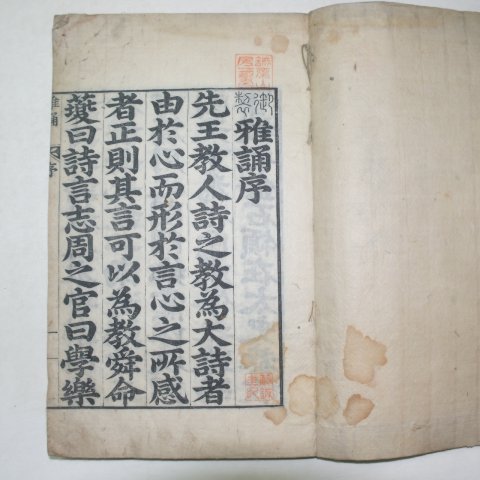 御製
雅誦序
先王教人詩之教為大詩者
由於心而形於言心之所感
者正則其言可以為教舜命
夔曰詩言志周之官曰學樂
雅誦 序